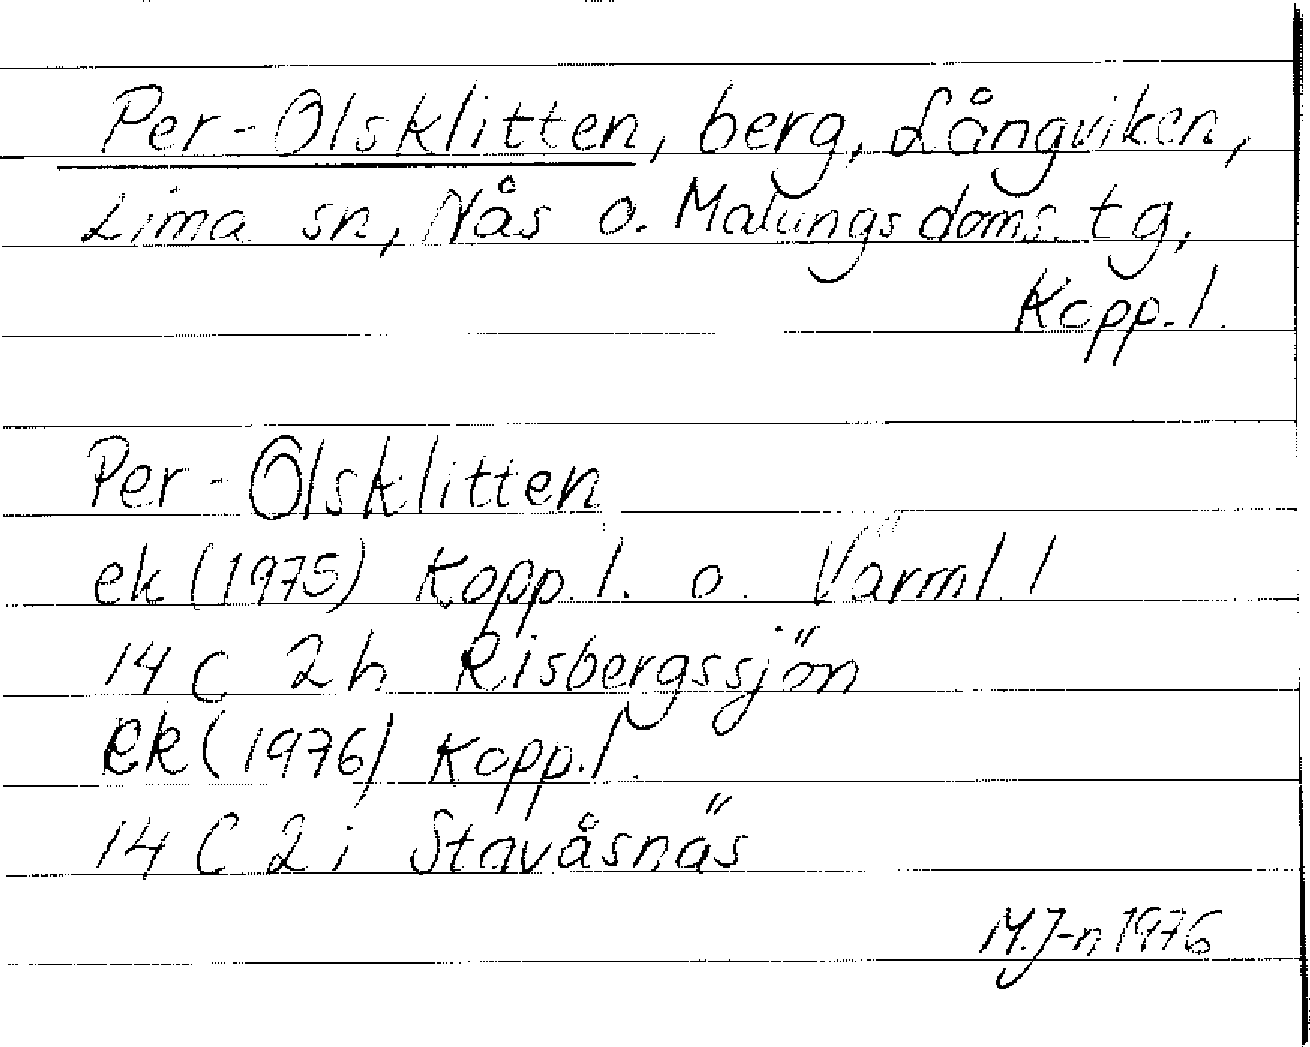 Per-Olsklitten, berg, Långviken,
Lima sn, Nås o. Malungs doms. tg,
Kopp. l.
Per-Olsklitten
ek (1975) Kopp. l. o. Värml. l
14 C 2h Risbergssjön
ek (1976) Kopp. l.
14 C 2i Stavåsnäs
M.J-n 1976